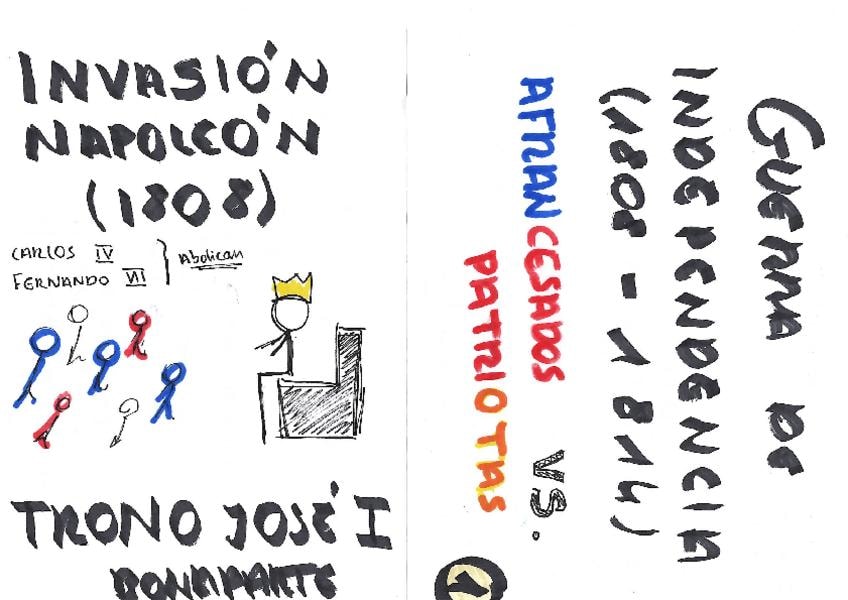 INVASIÓN
NAPOLEÓN
(1808)
CARLOS IV
FERNANDO VII
Abolican
TRONO JOSÉ I
BONAPARTE
GUERRA DE
INDEPENDENCIA
(1808 - 1814)
AFRANCESADOS VS.
PATRIOTAS
1